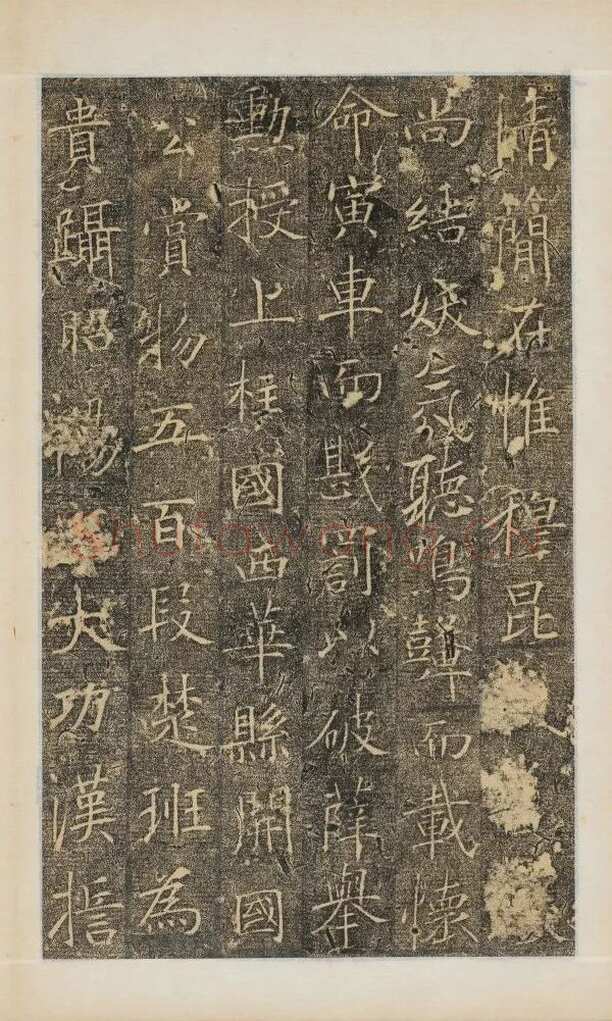 情簡在惟穆昆
尚結妖氛聽鳴鼙而載懷
命寅車而戡罰以破薛舉
勳授上柱國西華縣開國
公賞物五百段楚班為
貴躡昭陽大功漢誓
shufawang.CN